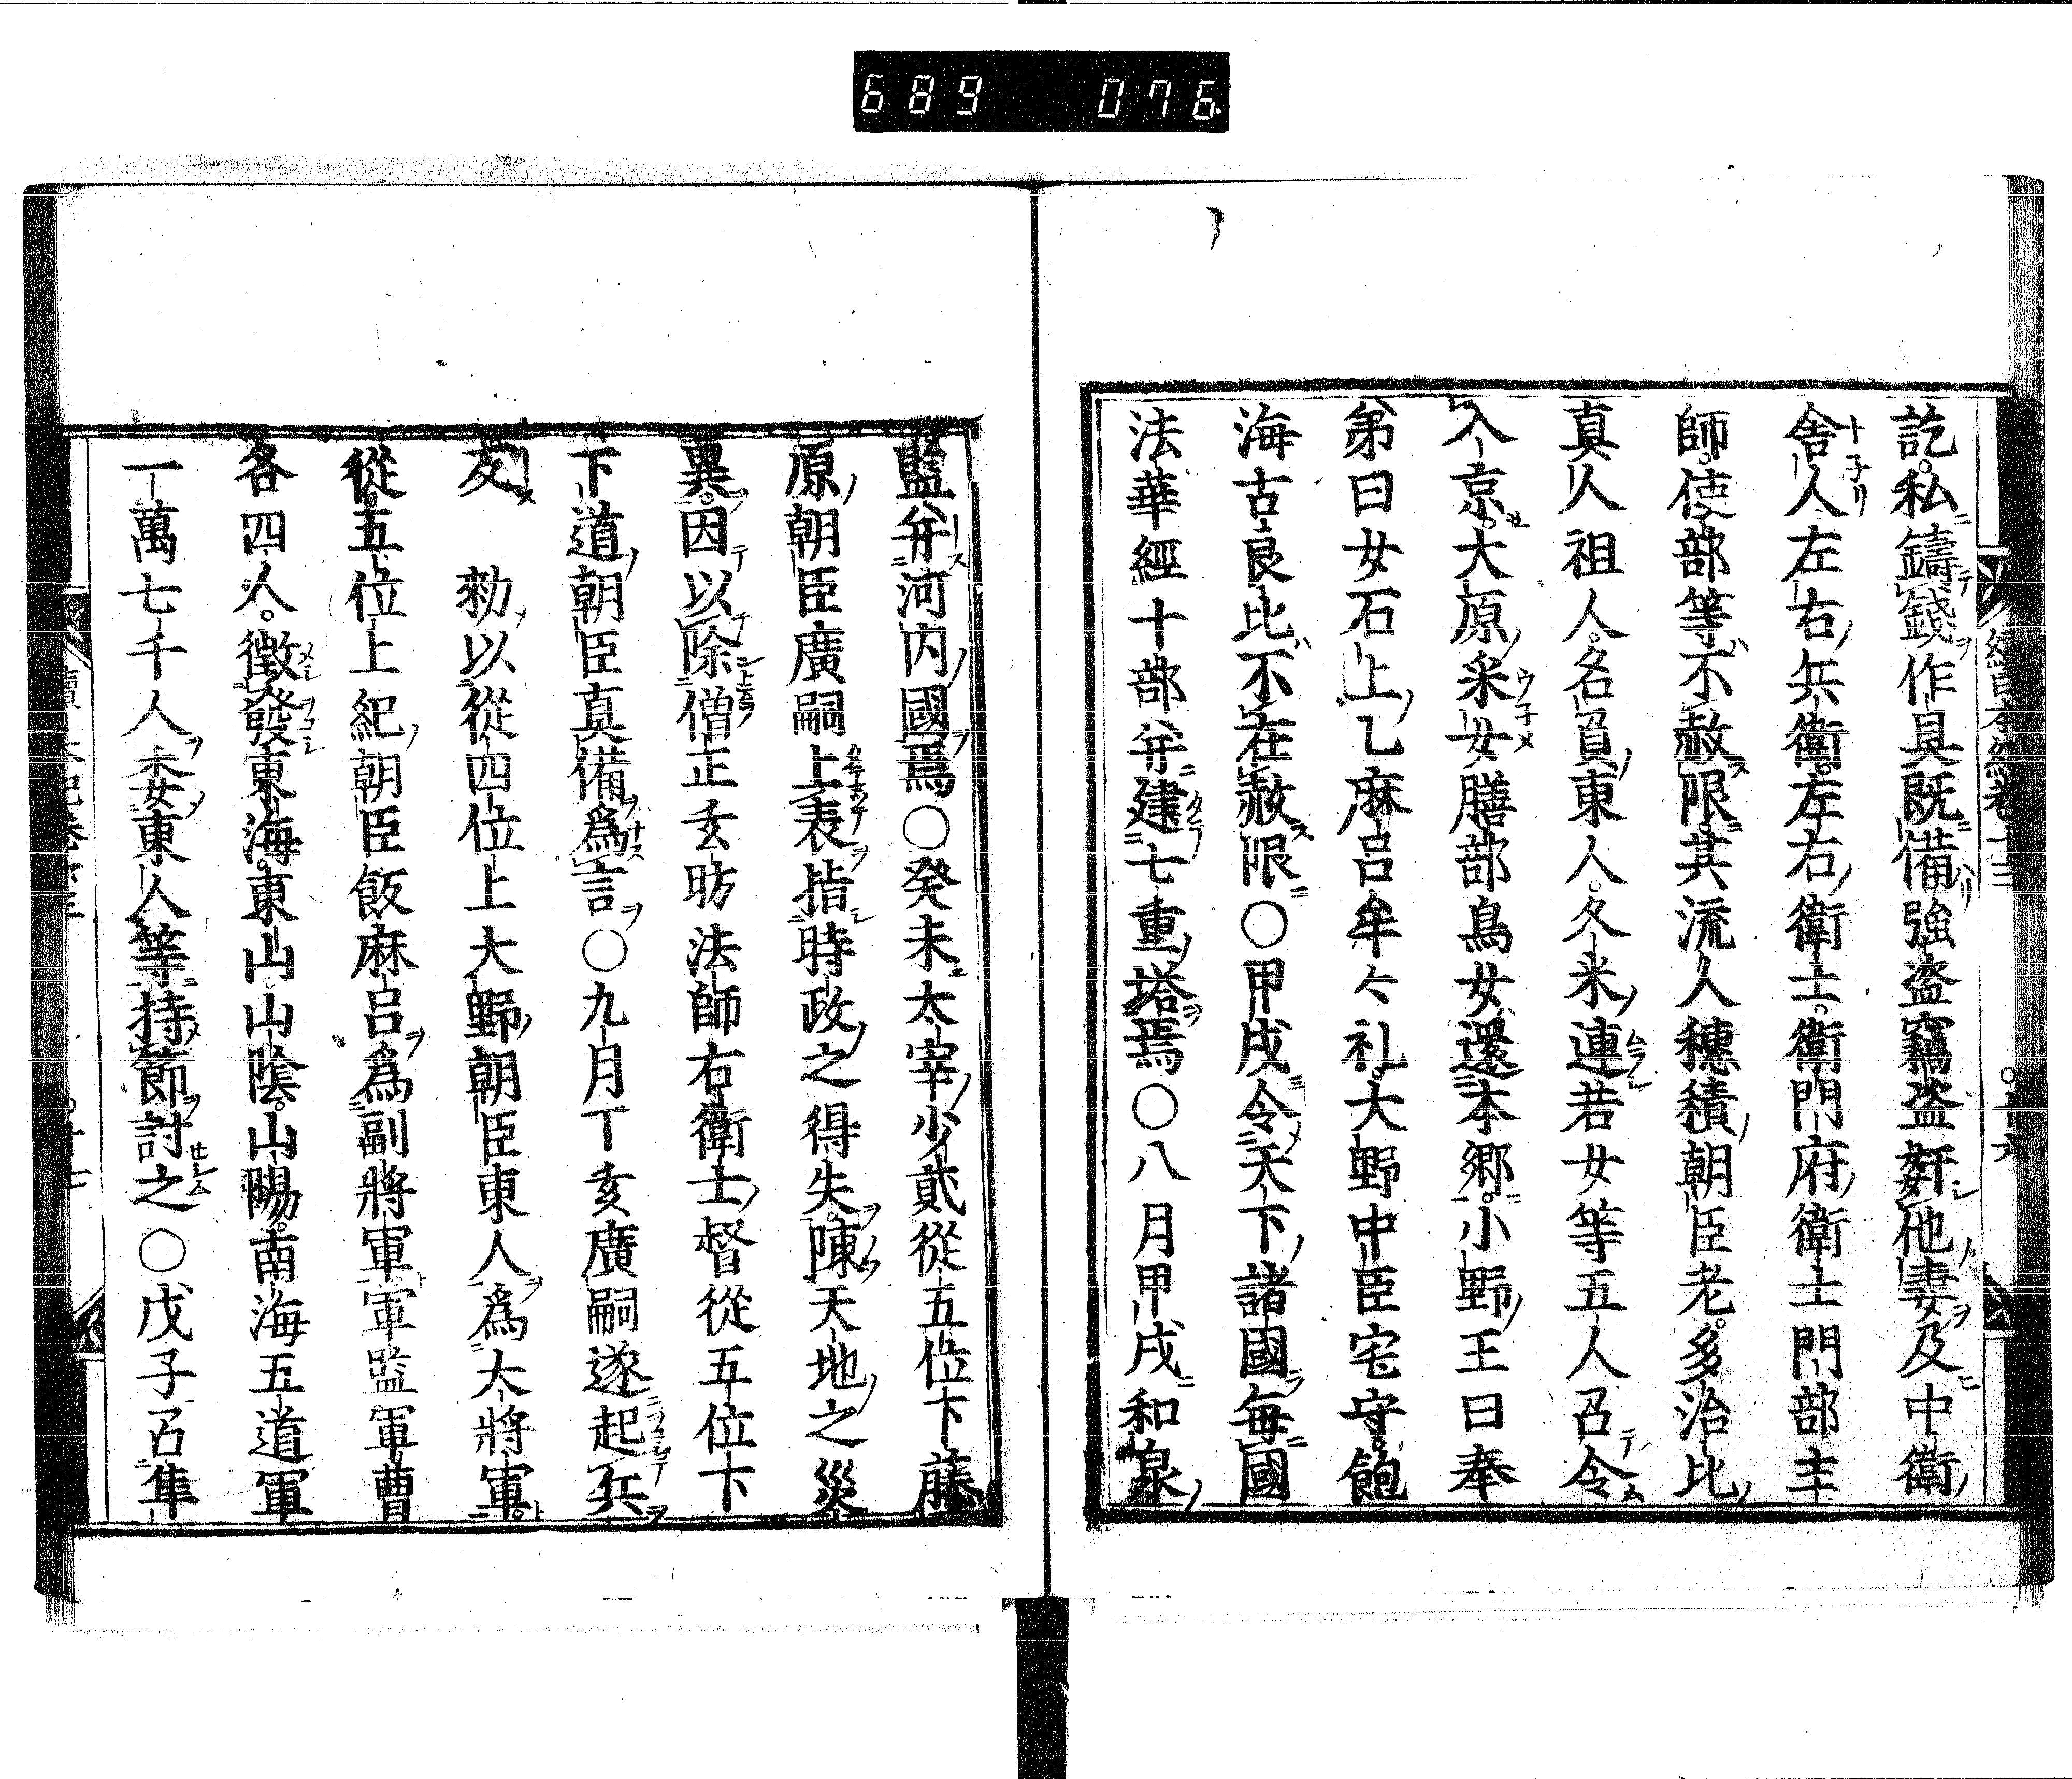 689 076
訖私鑄錢作具既備強盗竊盗姧他妻及中衛
舎人左右兵衛左右衛士衛門府衛士門部主
師使部等不赦限其流人穗積朝臣老多治比
真人祖人名負東人久米連若女等五人召令
入京大原采女膳部鳥女還本郷小野王日奉
弟日女石上乙麻呂牟々礼大野中臣宅守飽
海古良比不在赦限〇甲戌令天下諸國毎國
法華經十部并建七重塔焉〇八月甲戌和泉
藍并河内國焉〇癸未太宰少貳從五位下藤
原朝臣廣嗣上表指時政之得失陳天地之災
異因以除僧正玄昉法師右衛士督從五位下
下道朝臣真備爲言〇九月丁亥廣嗣遂起兵
反 勑以從四位上大野朝臣東人爲大將軍
從五位上紀朝臣飯麻呂爲副將軍軍監軍曹
各四人徴發東海東山山陰山陽南海五道軍
一萬七千人委東人等持節討之〇戊子召隼